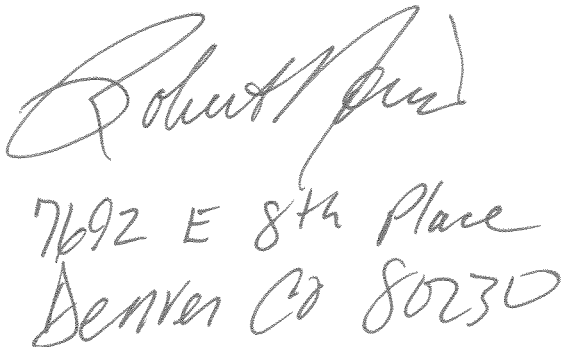 Robert
7692 E 8th Place
Denver Co 80230